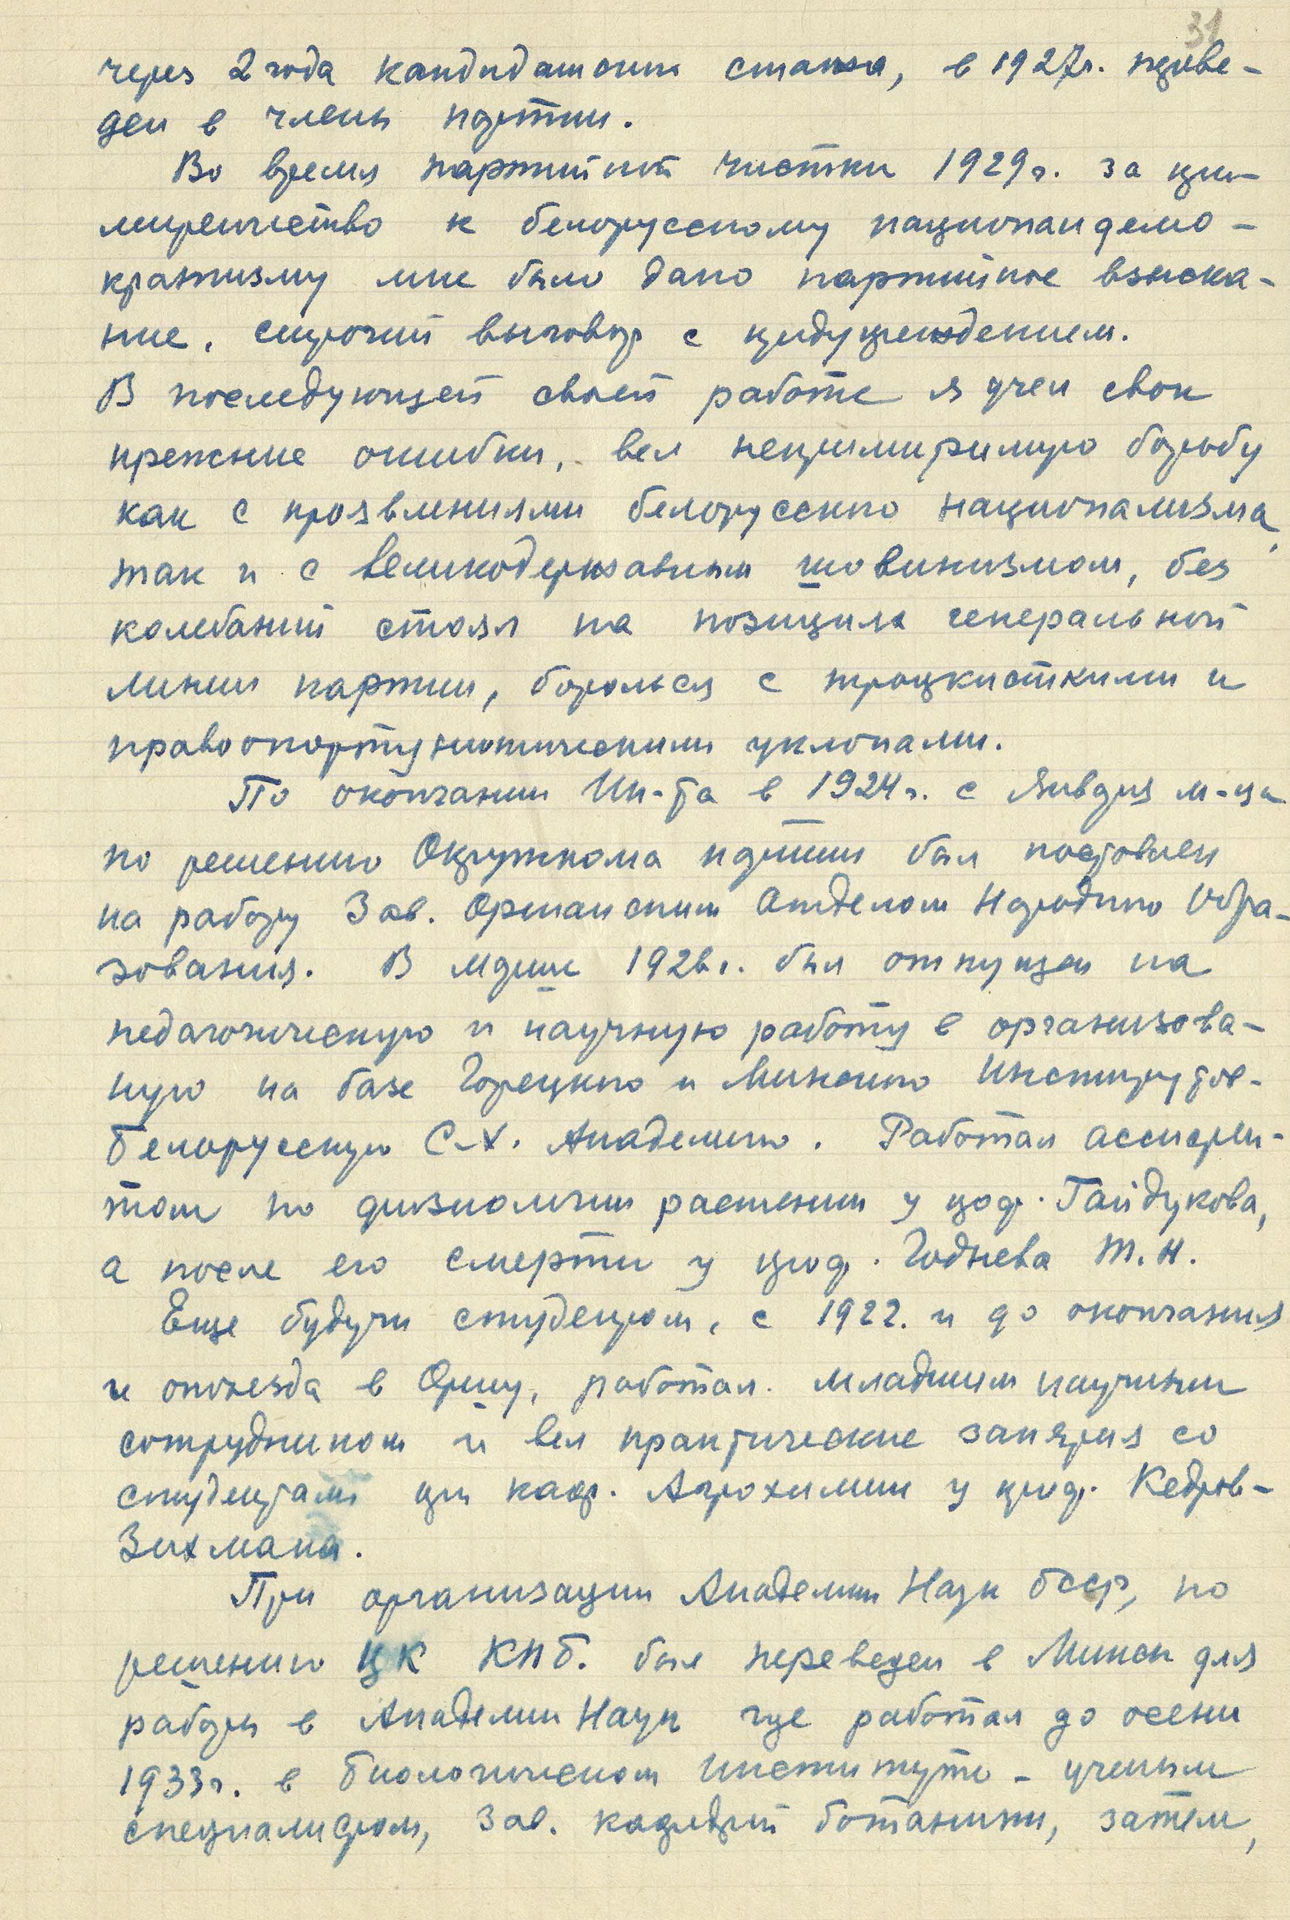 31
через 2 года кандидатского стажа, в 1927г. переве-
ден в члены партии.
Во время партийной чистки 1929г. за при-
миренчество к белорусскому национал демо-
кратизму мне было дано партийное взыска-
ние, строгий выговор с предупреждением.
В последующей своей работе я учел свои
прежние ошибки, вел непримиримую борьбу
как с проявлениями белорусского национализма,
так и с великодержавным шовинизмом, без
колебаний стоял на позициях генеральной
линии партии, боролься с троцкисткими и
правооппортунистическими уклонами.
По окончании Ин-та в 1924г. с января м-ца
по решению Окружкома партии был поставлен
на работу Зав. Оршанским Отделом Народного Обра-
зования. В марте 1926г. был отпущен на
педагогическую и научную работу в организова-
ную на базе Горецкого и Минского Институтов-
Белорусскую С.Х. Академию. Работал ассистен-
том по физиологии растении у проф. Гайдукова,
а после его смерти у проф. Годнева Т.Н.
Еще будучи студентом, с 1922. и до окончания
и отъезда в Оршу, работал младшим научным
сотрудником и вел практические занятия со
студентами при каф. Агрохимии у проф. Кедров-
Зихмана.
При организации Академии Наук БССР, по
решению ЦК КПБ. был переведен в Минск для
работы в Академии Наук где работал до осени
1933г. в биологическом институте - ученым
специалистом, Зав. кафедрой ботаники, затем,